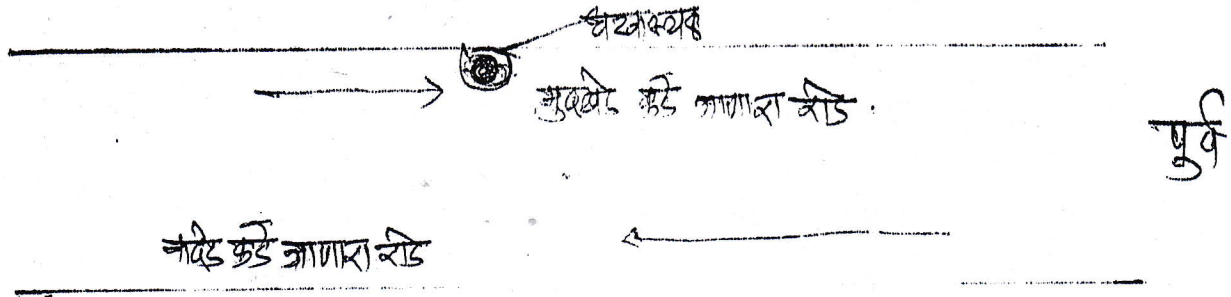 घटनास्थळ
मुदखेड कडे जाणारा रोड.
पुर्व
नांदेड कडे जाणारा रोड